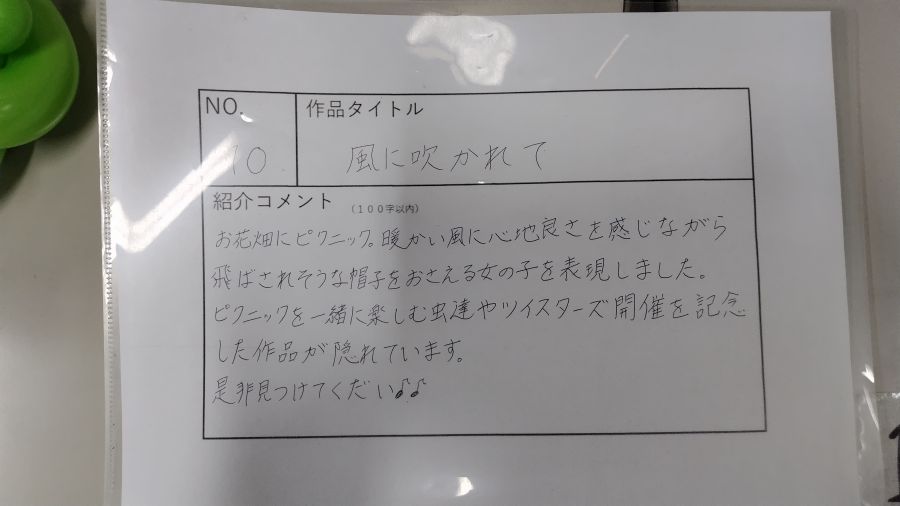 NO.
作品タイトル
10
風に吹かれて
紹介コメント (100字以内)
お花畑にピクニック。暖かい風に心地良さを感じながら
飛ばされそうな帽子をおさえる女の子を表現しました。
ピクニックを一緒に楽しむ虫達やツイスターズ開催を記念
した作品が隠れています。
是非見つけてくだい♪♪